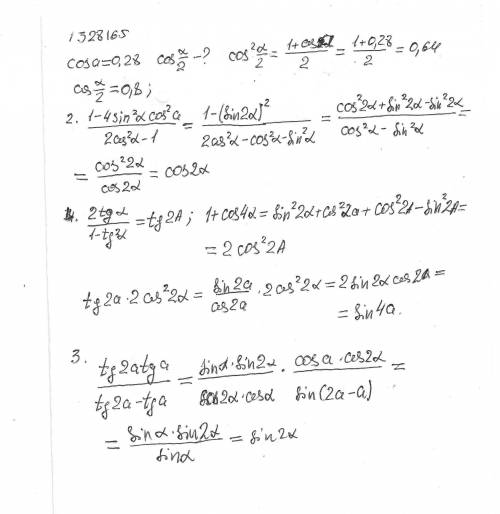 1328165
cosa=0,28 cos α/2 -? cos² α/2 = (1+cosα)/2 = (1+0,28)/2 = 0,64
cos α/2 = 0,8;
2. (1-4sin²α cos²a)/(2cos²α-1) = (1-(sin2α)²)/(2cos²α-cos²α-sin²α) = (cos²2α+sin²2α-sin²2α)/(cos²α-sin²α) =
= cos²2α/cos2α = cos2α
4. 2tgα/(1-tg²α) = tg2A; 1+cos4α = sin²2α+cos²2a+cos²2A-sin²2A=
= 2cos²2A
tg2a·2cos²2α = sin2a/cos2a · 2cos²2α = 2sin2α cos2A =
= sin4a.
3. tg2atga/(tg2a-tga) = sinα·sin2α/(cos2α·cosα) · cosa·cos2α/sin(2a-a) =
= sinα·sin2α/sinα = sin2α